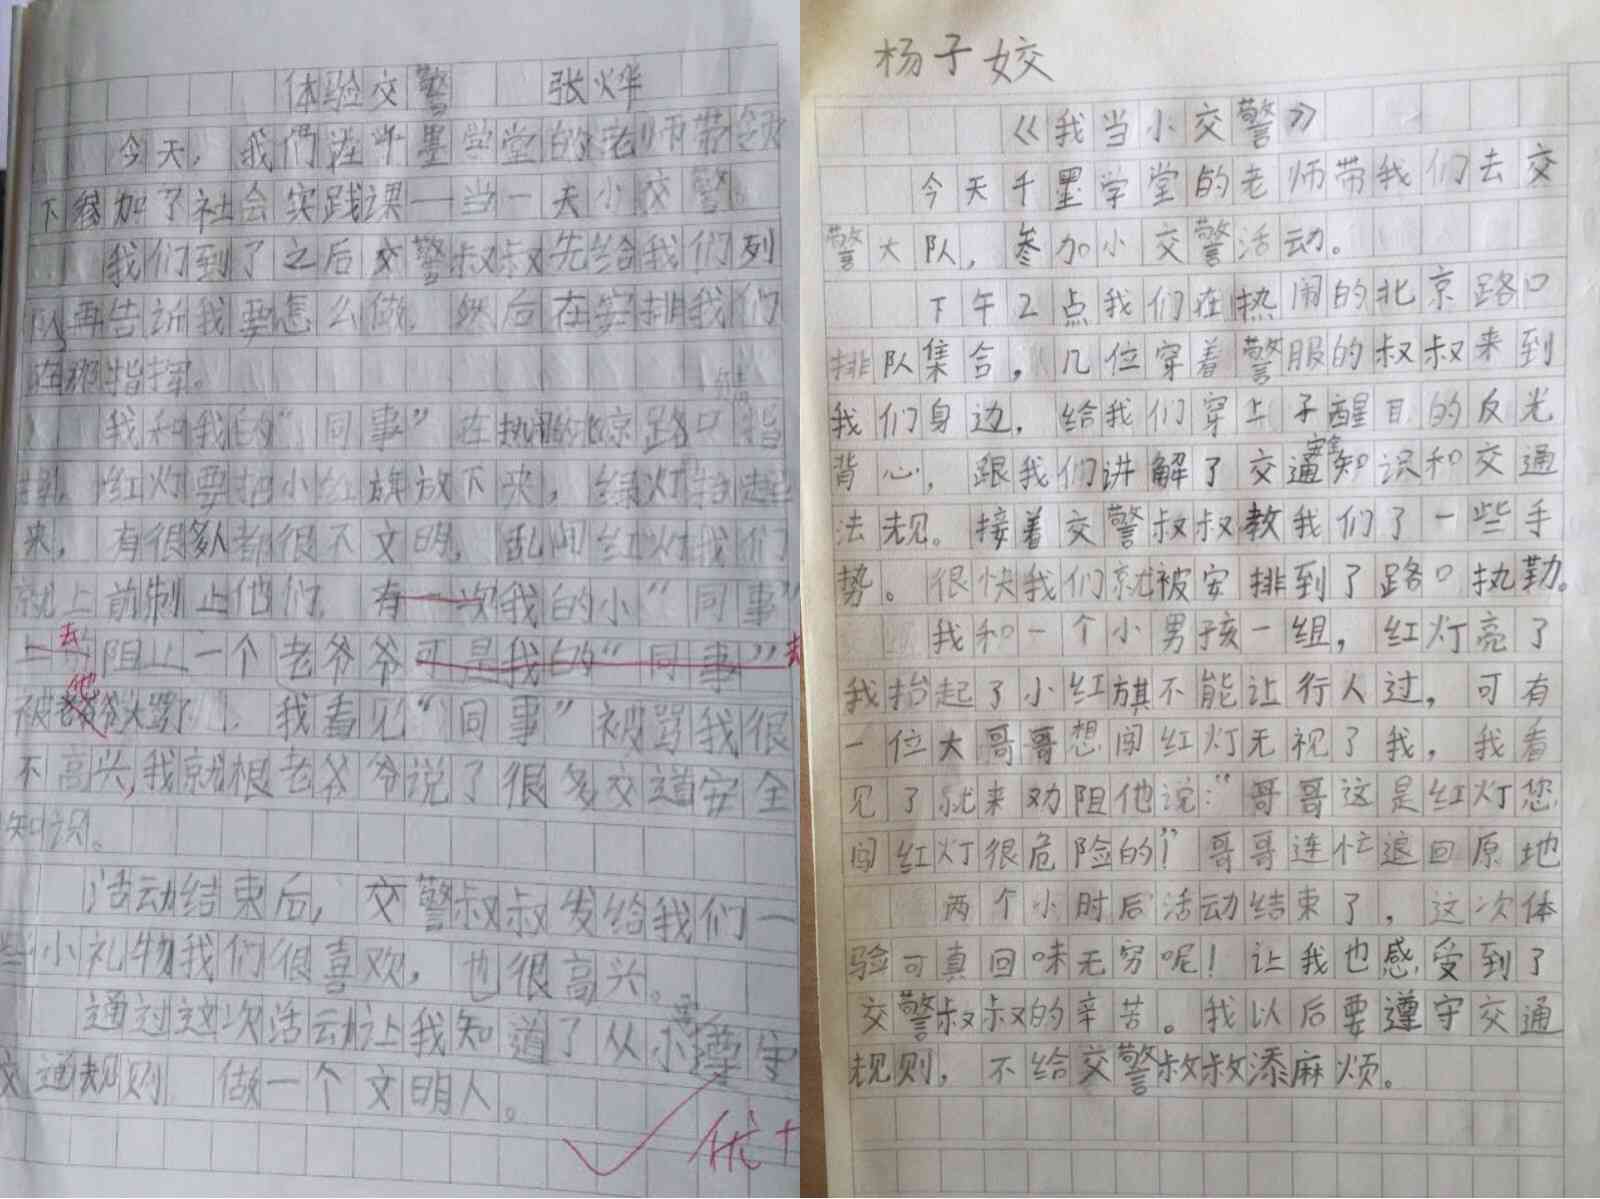 体验交警 张烨
今天，我们在千墨学堂的老师带领
下参加了社会实践课一当一天小交警。
我们到了之后交警叔叔先给我们列
队再告诉我要怎么做，然后在安排我们
在哪指挥。
我和我的“同事”在热闹的北京路口指
挥，红灯要把小红旗放下来，绿灯抬起
来，有很多人都很不文明，乱闯红灯我们
就上前制止他们，有一次我的小“同事”
去阻止一个老爷爷可是我的“同事”
被老爷爷大骂了，我看见“同事”被骂我很
不高兴，我就根老爷爷说了很多交道安全
知识。
活动结束后，交警叔叔发给我们一
些小礼物我们很喜欢，也很高兴。
通过这次活动让我知道了从小要遵守
交通规则，做一个文明人。
优+
杨子姣
《我当小交警》
今天千墨学堂的老师带我们去交
警大队，参加小交警活动。
下午2点我们在热闹的北京路口
排队集合，几位穿着警服的叔叔来到
我们身边，给我们穿上了醒目的反光
背心，跟我们讲解了交通安全知识和交通
法规。接着交警叔叔教我们了一些手
势。很快我们就被安排到了路口执勤。
我和一个小男孩一组，红灯亮了
我抬起了小红旗不能让行人过，可有
一位大哥哥想闯红灯无视了我，我看
见了就来劝阻他说：“哥哥这是红灯您
闯红灯很危险的！”哥哥连忙退回原地
两个小时后活动结束了，这次体
验可真回味无穷呢！让我也感受到了
交警叔叔的辛苦。我以后要遵守交通
规则，不给交警叔叔添麻烦。